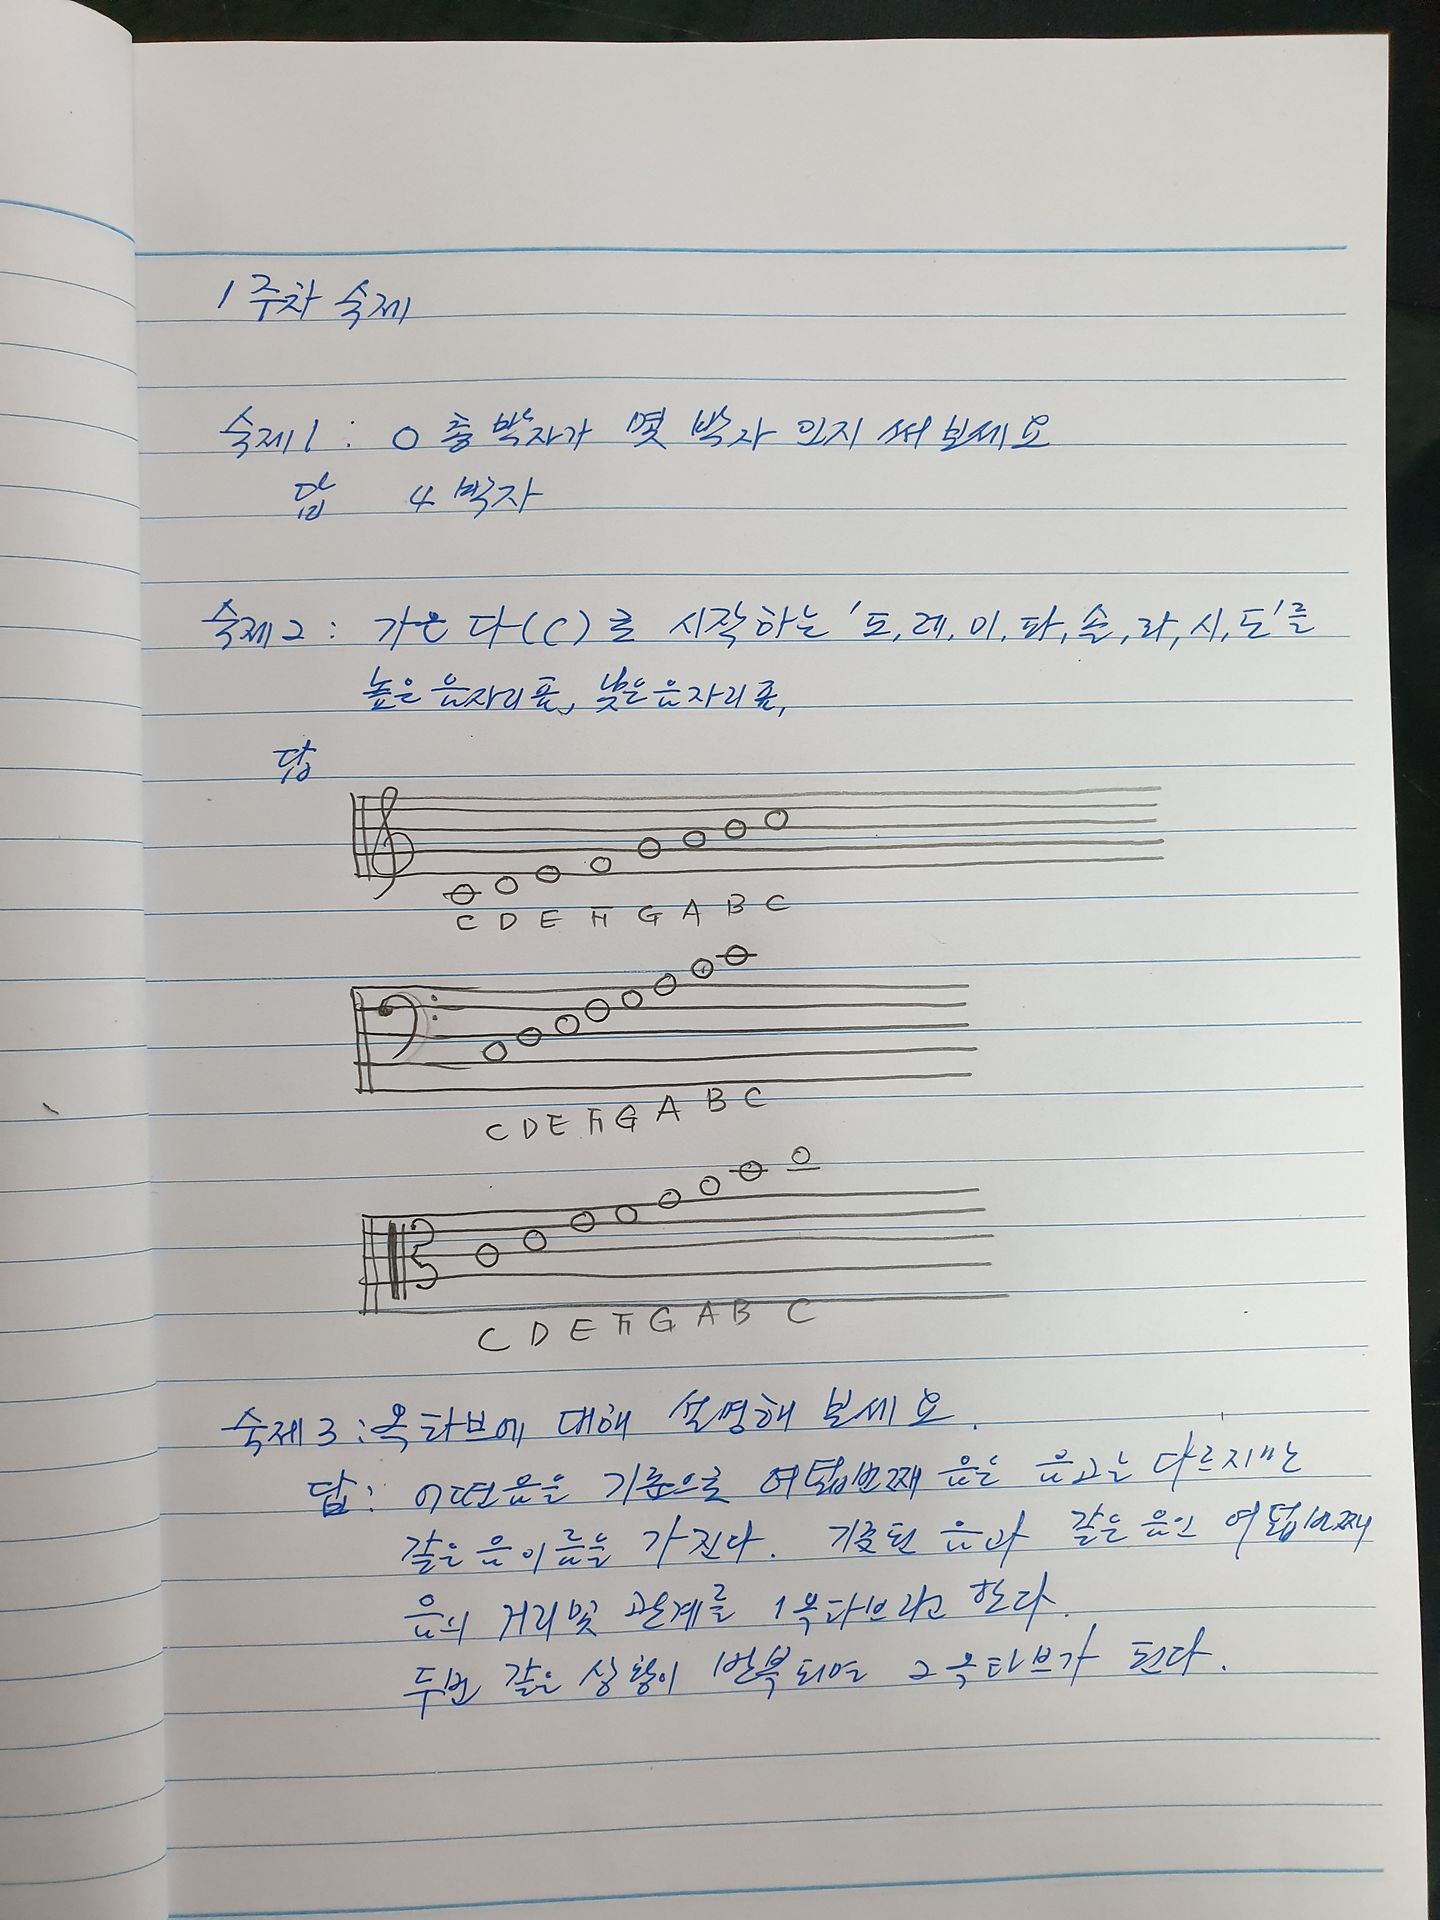 1주차 숙제
숙제1: O 총 박자가 몇 박자 인지 써 보세요
답 4 박자
숙제2: 가온 다(C)로 시작하는 '도,레,미,파,솔,라,시,도'를
높은 음자리표, 낮은음자리표,
답
C D E F G A B C
C D E F G A B C
C D E F G A B C
숙제3: 옥타브에 대해 설명해 보세요.
답: 어떤음을 기준으로 여덟번째 음은 음고는 다르지만
같은 음이름을 가진다. 기준된 음과 같은 음인 여덟번째
음의 거리및 관계를 1옥타브라고 한다.
두번 같은 상황이 반복되면 2옥타브가 된다.